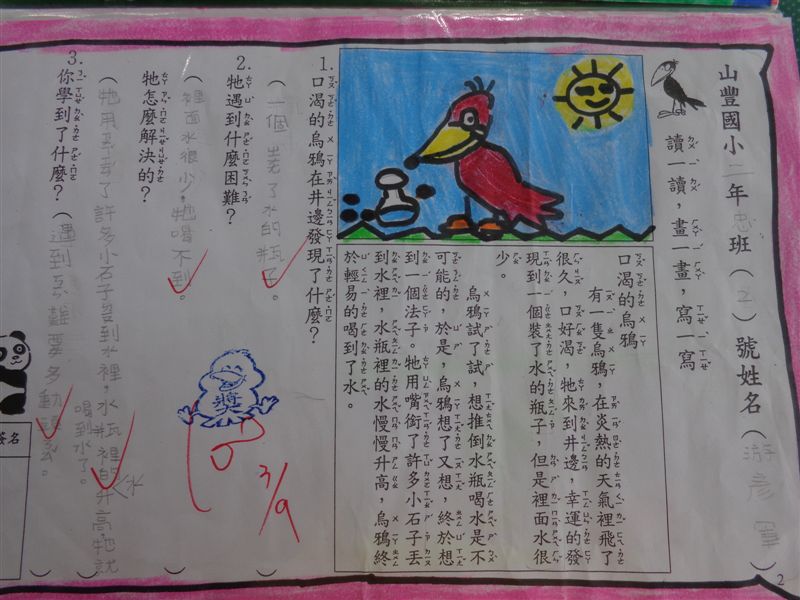 山豐國小二年忠班（2）號姓名（游彥
讀一讀，畫一畫，寫一寫
口渴的烏鴉
有一隻烏鴉，在炎熱的天氣裡飛了
很久，口好渴，牠來到井邊，幸運的發
現到一個裝了水的瓶子，但是裡面水很
少。
烏鴉試了試，想推倒水瓶喝水是不
可能的，於是，烏鴉想了又想，終於想
到一個法子。牠用嘴銜了許多小石子丟
到水裡，水瓶裡的水慢慢升高，烏鴉終
於輕易的喝到了水。
1.口渴的烏鴉在井邊發現了什麼？
（一個裝了水的瓶子。）
2.牠遇到什麼困難？
（裡面水很少，牠喝不到。）
牠怎麼解決的？
（牠用丟了許多小石子到水裡，水瓶裡的水升高，牠就
喝到水了。）
3.你學到了什麼？（遇到困難要多動頭。）
獎
3/9
簽名
2